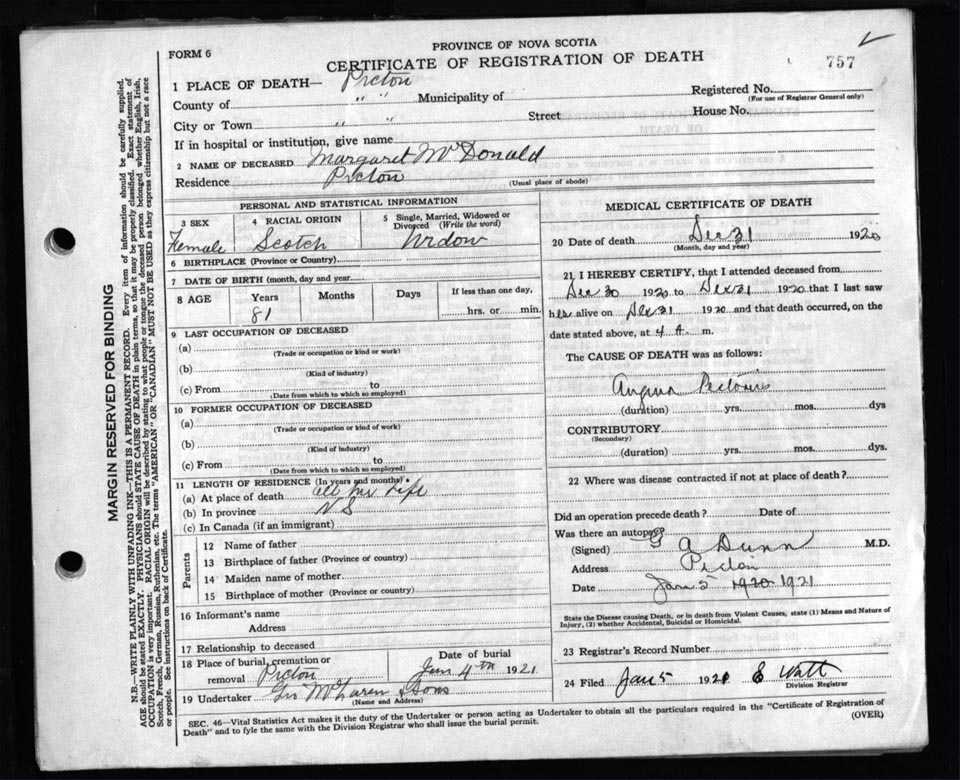 FORM 6
PROVINCE OF NOVA SCOTIA
CERTIFICATE OF REGISTRATION OF DEATH
757
1 PLACE OF DEATH— Pictou
County of " " Municipality of
Registered No.
(For use of Registrar General only)
City or Town " " Street House No.
If in hospital or institution, give name
2 NAME OF DECEASED Margaret McDonald
Residence Pictou
(Usual place of abode)
PERSONAL AND STATISTICAL INFORMATION
3 SEX
Female
4 RACIAL ORIGIN
Scotch
5 Single, Married, Widowed or Divorced (Write the word)
Widow
6 BIRTHPLACE (Province or Country)
7 DATE OF BIRTH (month, day and year)
8 AGE Years Months Days If less than one day,
81 hrs. or min.
9 LAST OCCUPATION OF DECEASED
(a)
(Trade or occupation or kind or work)
(b)
(Kind of industry)
(c) From to
(Date from which to which so employed)
10 FORMER OCCUPATION OF DECEASED
(a)
(Trade or occupation or kind of work)
(b)
(Kind of industry)
(c) From to
(Date from which to which so employed)
11 LENGTH OF RESIDENCE (In years and months)
(a) At place of death all her life
(b) In province N S
(c) In Canada (if an immigrant)
Parents
12 Name of father
13 Birthplace of father (Province or country)
14 Maiden name of mother
15 Birthplace of mother (Province or country)
16 Informant's name
Address
17 Relationship to deceased
18 Place of burial, cremation or removal Pictou
Date of burial
Jan 4th 1921
19 Undertaker Geo McLaren & Sons
(Name and Address)
MEDICAL CERTIFICATE OF DEATH
20 Date of death Dec 31 1920
(Month, day and year)
21 I HEREBY CERTIFY, that I attended deceased from
Dec 30 1920 to Dec 31 1920 that I last saw
her alive on Dec 31 1920 and that death occurred, on the
date stated above, at 4 A. m.
The CAUSE OF DEATH was as follows:
Angina Pectoris
(duration) yrs. mos. dys
CONTRIBUTORY
(Secondary)
(duration) yrs. mos. dys.
22 Where was disease contracted if not at place of death?
Did an operation precede death? Date of
Was there an autopsy?
(Signed) G A Dunn M.D.
Address Pictou
Date Jan 5 1920 1921
State the Disease causing Death, or in death from Violent Causes, state (1) Means and Nature of
Injury, (2) whether Accidental, Suicidal or Homicidal.
23 Registrar's Record Number
24 Filed Jan 5 1921 E Watt
Division Registrar
SEC. 46—Vital Statistics Act makes it the duty of the Undertaker or person acting as Undertaker to obtain all the particulars required in the "Certificate of Registration of
Death" and to fyle the same with the Division Registrar who shall issue the burial permit.
(OVER)
MARGIN RESERVED FOR BINDING
N.B.—WRITE PLAINLY WITH UNFADING INK—THIS IS A PERMANENT RECORD. Every item of information should be carefully supplied.
AGE should be stated EXACTLY. PHYSICIANS should STATE CAUSE OF DEATH in plain terms, so that it may be properly classified. Exact statement of
OCCUPATION is very important. RACIAL ORIGIN will be described by stating to what people or tongue the deceased person belonged whether English, Irish,
Scotch, French, German, Russian, Ruthenian, etc. The terms "AMERICAN" OR "CANADIAN" MUST NOT BE USED as they express citizenship but not a race
or people. See instructions on back of Certificate.